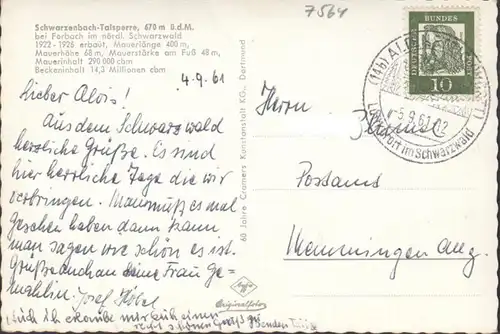 7564
Schwarzenbach-Talsperre, 670 m ü.d.M.
bei Forbach im nördl. Schwarzwald
1922 - 1926 erbaut, Mauerlänge 400 m,
Mauerhöhe 68 m, Mauerstärke am Fuß 48 m,
Mauerinhalt 290 000 cbm
Beckeninhalt 14,3 Millionen cbm
4.9.61
Lieber Alois!
Aus dem Schwarzwald
herzliche Grüße. Es sind
hier herrliche Tage die wir
verbringen. Man muß es mal
gesehen haben dann kann
man sagen wie schön es ist.
Grüße auch an deine Frau Ge-
mahlin Josef
Auch ich erlaube mir auch einen
recht schönen Gruß zu senden
60 Jahre Cramers Kunstanstalt KG., Dortmund
Agfa
Originalfoto
DEUTSCHE BUNDESPOST
10
(14b)
-5.9.61-12
Luftkurort im Schwarzwald
Herrn
Postamt
Memmingen Allg.